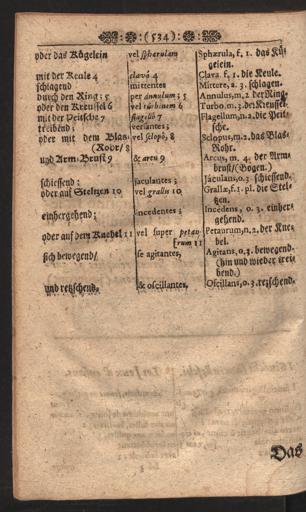 :(534):
oder das Kügelein
mit der Keule 4
schlagend
durch den Ring; 5
oder den Kreussel 6
mit der Peitsche 7
treibend;
oder mit dem Blas-
(Rohr/ 8
und Arm-Brust 9
schiessend:
oder auf Steltzen 10
einhergehend;
oder auf dem Knebel 11
sich bewegend/
und retzschend.
vel sphærulam
clavâ 4
mittentes
per annulum; 5
vel turbinem 6
flagello 7
versantes;
vel sclopo, 8
& arcu 9
jaculantes;
vel grallis 10
incedentes;
vel super petau-
rum 11
se agitantes,
& oscillantes.
Sphærula, f. 1. das Kü-
gelein.
Clava, f. 1. die Keule.
Mittere, a. 3. schlagen.
Annulus, m. 2. der Ring.
Turbo, m. 3. der Kreussel.
Flagellum, n. 2. die Peit-
sche.
Sclopus, m. 2. das Blas-
Rohr.
Arcus, m. 4. der Arm-
brust/(Bogen.)
Jaculans, o. 3. schiessend.
Grallæ, f. 1. pl. die Stel-
tzen.
Incedens, o. 3. einher-
gehend.
Petaurum, n. 2. der Kne-
bel.
Agitans, o. 3. bewegend.
(hin und wieder trei-
bend.)
Oscillans, o. 3. retzschend.
Das